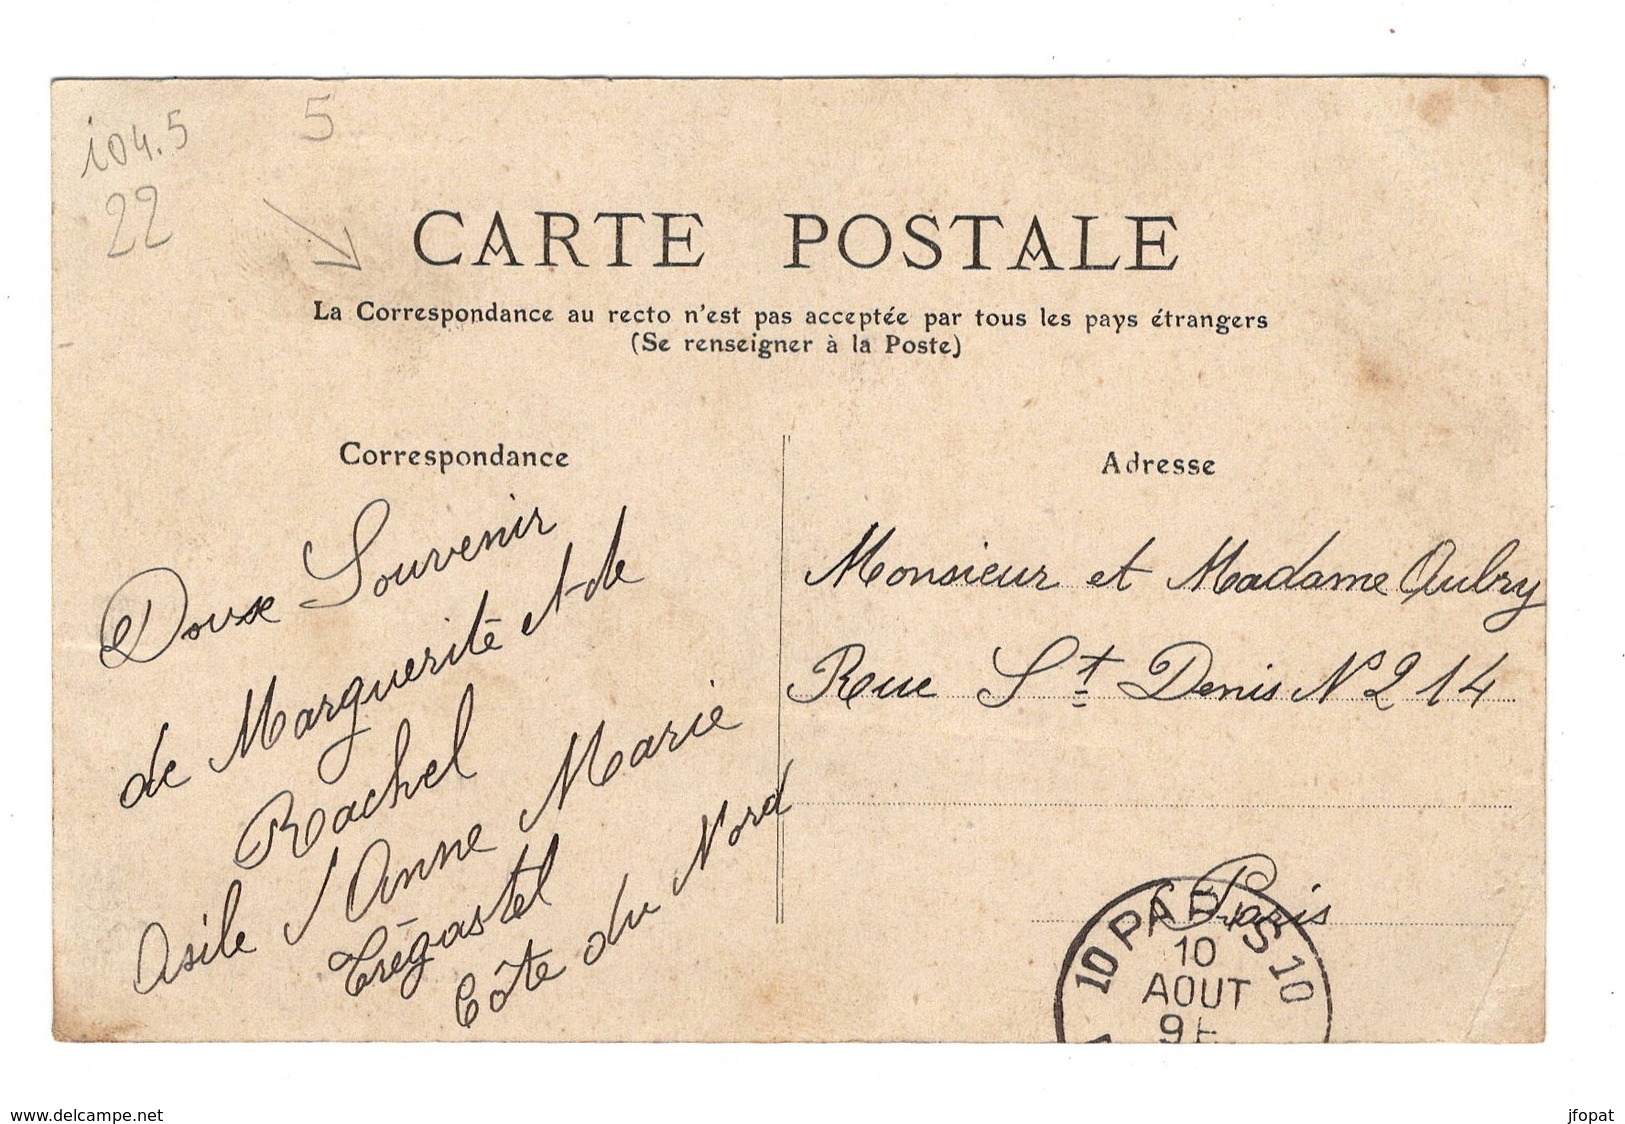 i04.5
5
22
CARTE POSTALE
La Correspondance au recto n'est pas acceptée par tous les pays étrangers
(Se renseigner à la Poste)
Correspondance
Doux Souvenir
de Marguerite et de
Rachel
Asile Anne Marie
Trégastel
Côte du Nord
Adresse
Monsieur et Madame Aubry
Rue St Denis N 214
Paris
10 PARIS 10
10
AOUT
9
www.delcampe.net
jfopat